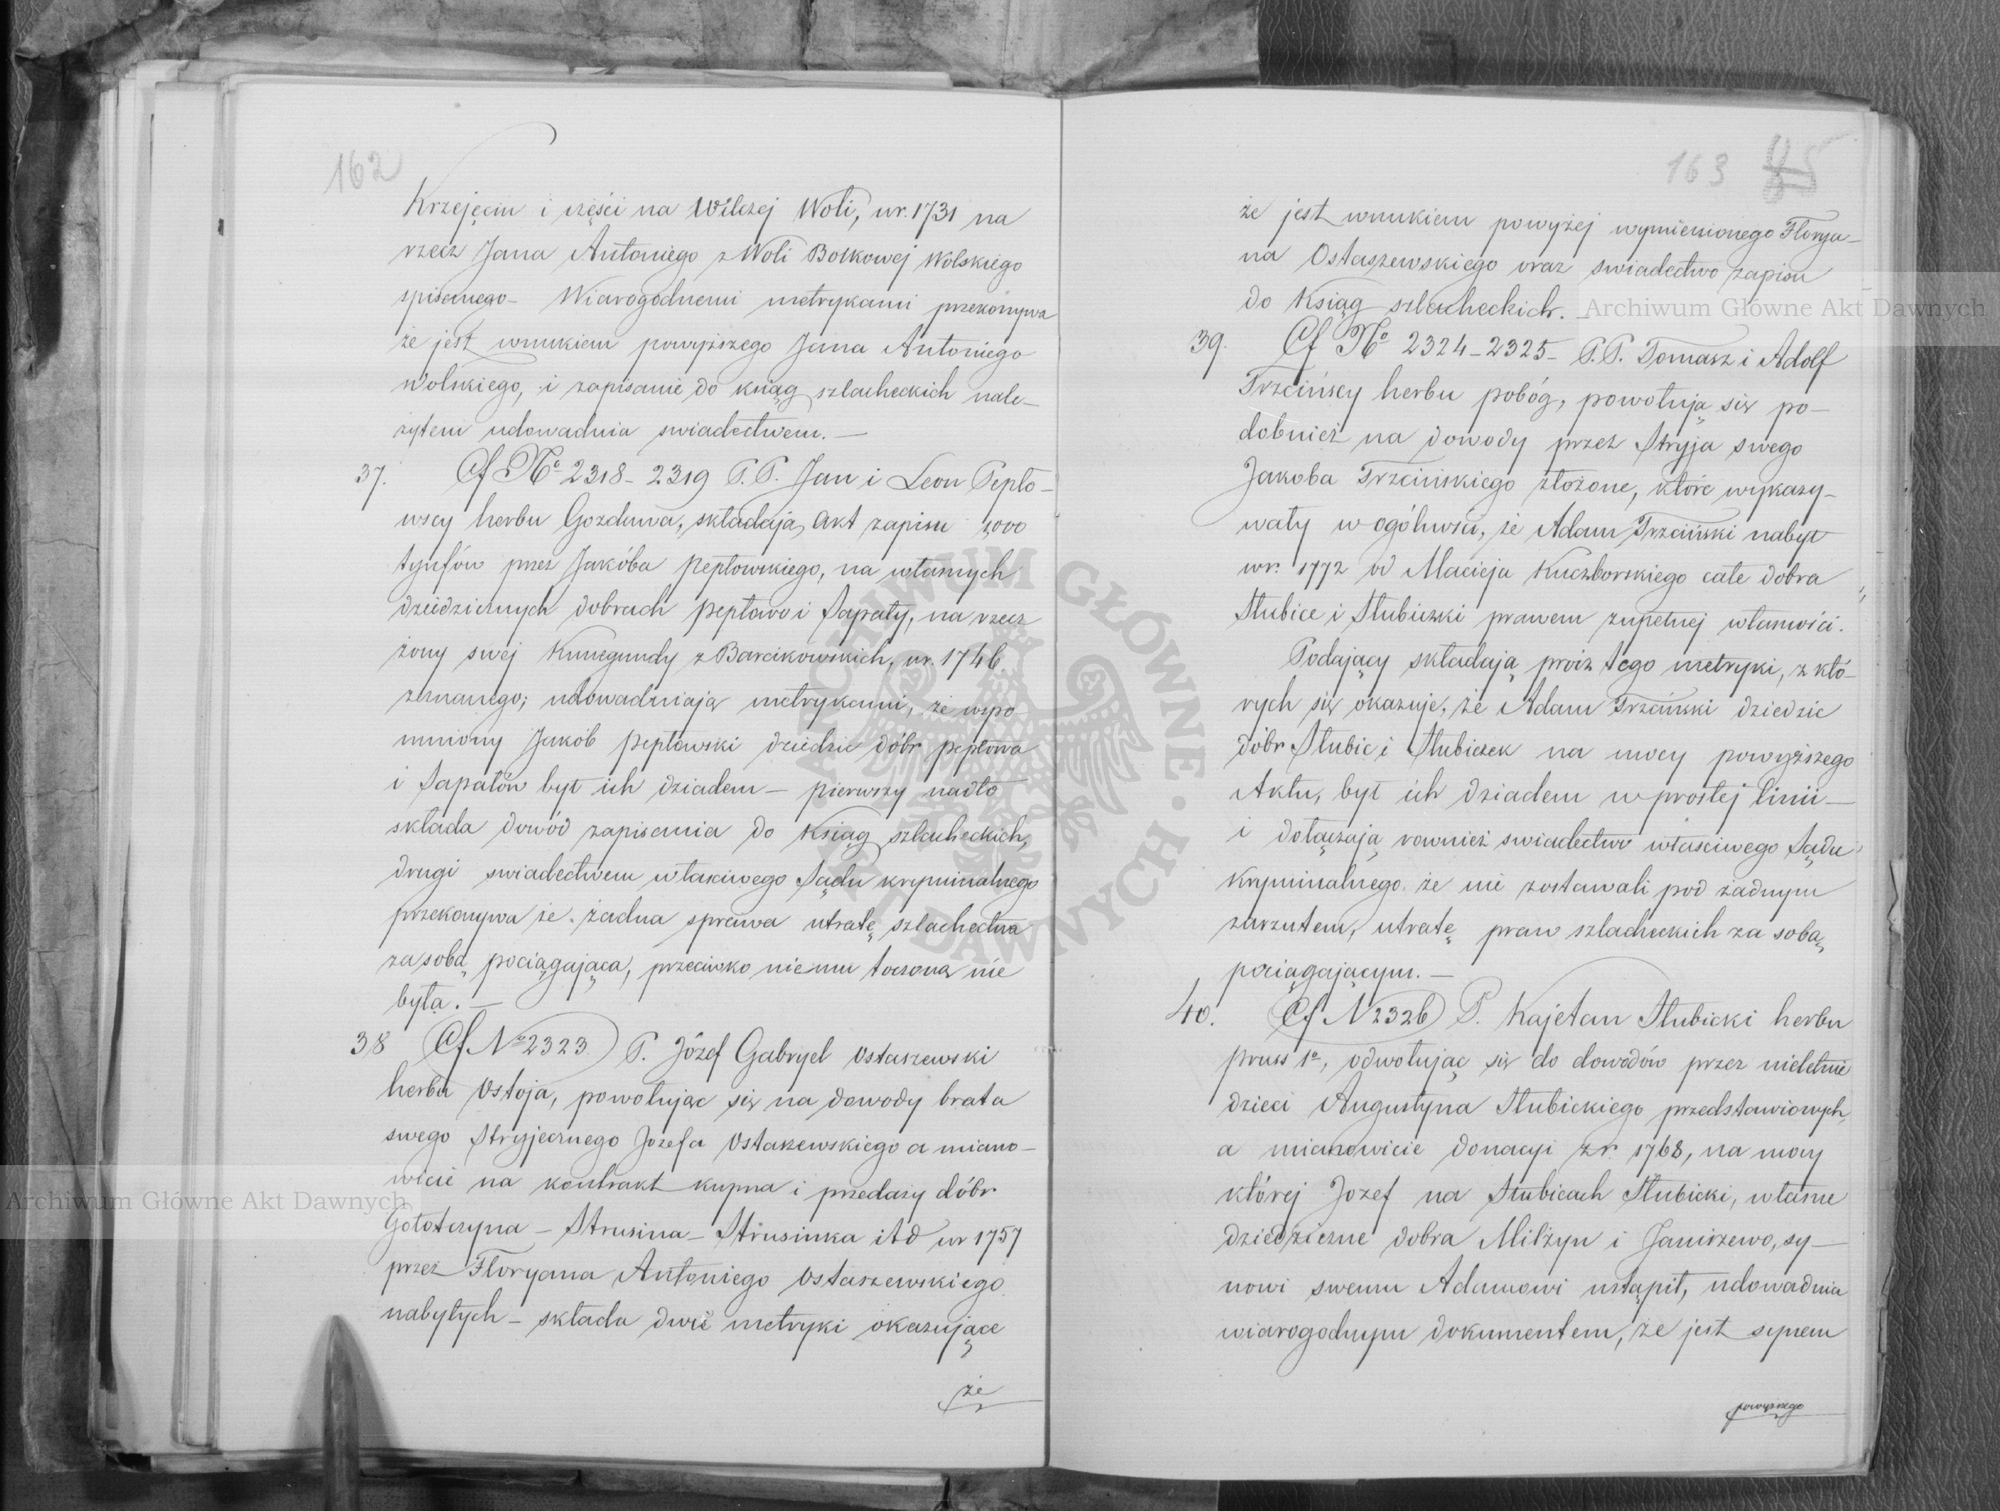 162
Krzejęciu i części na Wilczej Woli, w r. 1731 na
rzecz Jana Antoniego z Woli Bolkowej Wolskiego
spisanego – Wiarogodnemi metrykami przekonywa
że jest wnukiem powyższego Jana Antoniego
Wolskiego, i zapisanie do ksiąg szlacheckich nale–
żytem udowadnia swiadectwem. —
37. Cf No 2318 – 2319 P.P. Jan i Leon Pepło–
wscy herbu Gozdawa, składają Akt zapisu 1,000
tynfów przez Jakóba Pepłowskiego, na własnych
dziedzicznych dobrach Pepłowo i Sapaty, na rzecz
żony swej Kunegundy z Barcikowskich, w r. 1746
zeznanego; udowadniają metrykami, że wspo
mniony Jakób Pepłowski dziedzic dóbr Pepłowa
i Sapatów był ich dziadem — pierwszy nadto
składa dowód zapisania do Ksiąg szlacheckich,
drugi swiadectwem własciwego Sądu kryminalnego
przekonywa że żadna sprawa utratę szlachectwa
za sobą pociągająca, przeciwko niemu toczona nie
była. —
38 Cf No 2323 P. Józef Gabryel Ostaszewski
herbu Ostoja, powołując się na dowody brata
swego stryjecznego Jozefa Ostaszewskiego a miano–
wicie na kontrakt kupna i przedaży dóbr
Gołotczyna – Strusina – Strusinka itd w r 1757
przez Floryana Antoniego Ostaszewskiego
nabytych – składa dwie metryki okazujące
że
163
że jest wnukiem powyżej wymienionego Florya–
na Ostaszewskiego oraz swiadectwo zapisu
do Ksiąg szlacheckich. —
39. Cf No 2324 – 2325 – P.P. Tomasz i Adolf
Trzcińscy herbu pobóg, powołują się po–
dobnież na dowody przez Stryja swego
Jakoba Trzcińskiego złożone, które wykazy–
wały w ogólności, że Adam Trzciński nabył
w r. 1772 od Macieja Kuczborskiego całe dobra
Słubice i Słubiczki prawem zupełnej własności.
Podający składają prócz tego metryki, z któ–
rych się okazuje, że Adam Trzciński dziedzic
dóbr Słubic i Słubiczek na mocy powyższego
Aktu, był ich dziadem w prostej linii —
i dołączają rownież swiadectwo właściwego Sądu
Kryminalnego że nie zostawali pod żadnym
zarzutem, utratę praw szlacheckich za sobą
pociągającym. —
40. Cf N 2326 P. Kajetan Słubicki herbu
pruss 1o, odwołując się do dowodów przez nieletnie
dzieci Augustyna Słubickiego przedstawionych,
a mianowicie donacyi z r. 1768, na mocy
której Jozef na Słubicach Słubicki, własne
dziedziczne dobra Milżyn i Janiszewo, sy–
nowi swemu Adamowi ustąpił, udowadnia
wiarogodnym dokumentem, że jest synem
powyższego
Archiwum Główne Akt Dawnych
Archiwum Główne Akt Dawnych
ARCHIWUM GŁÓWNE · AKT DAWNYCH ·